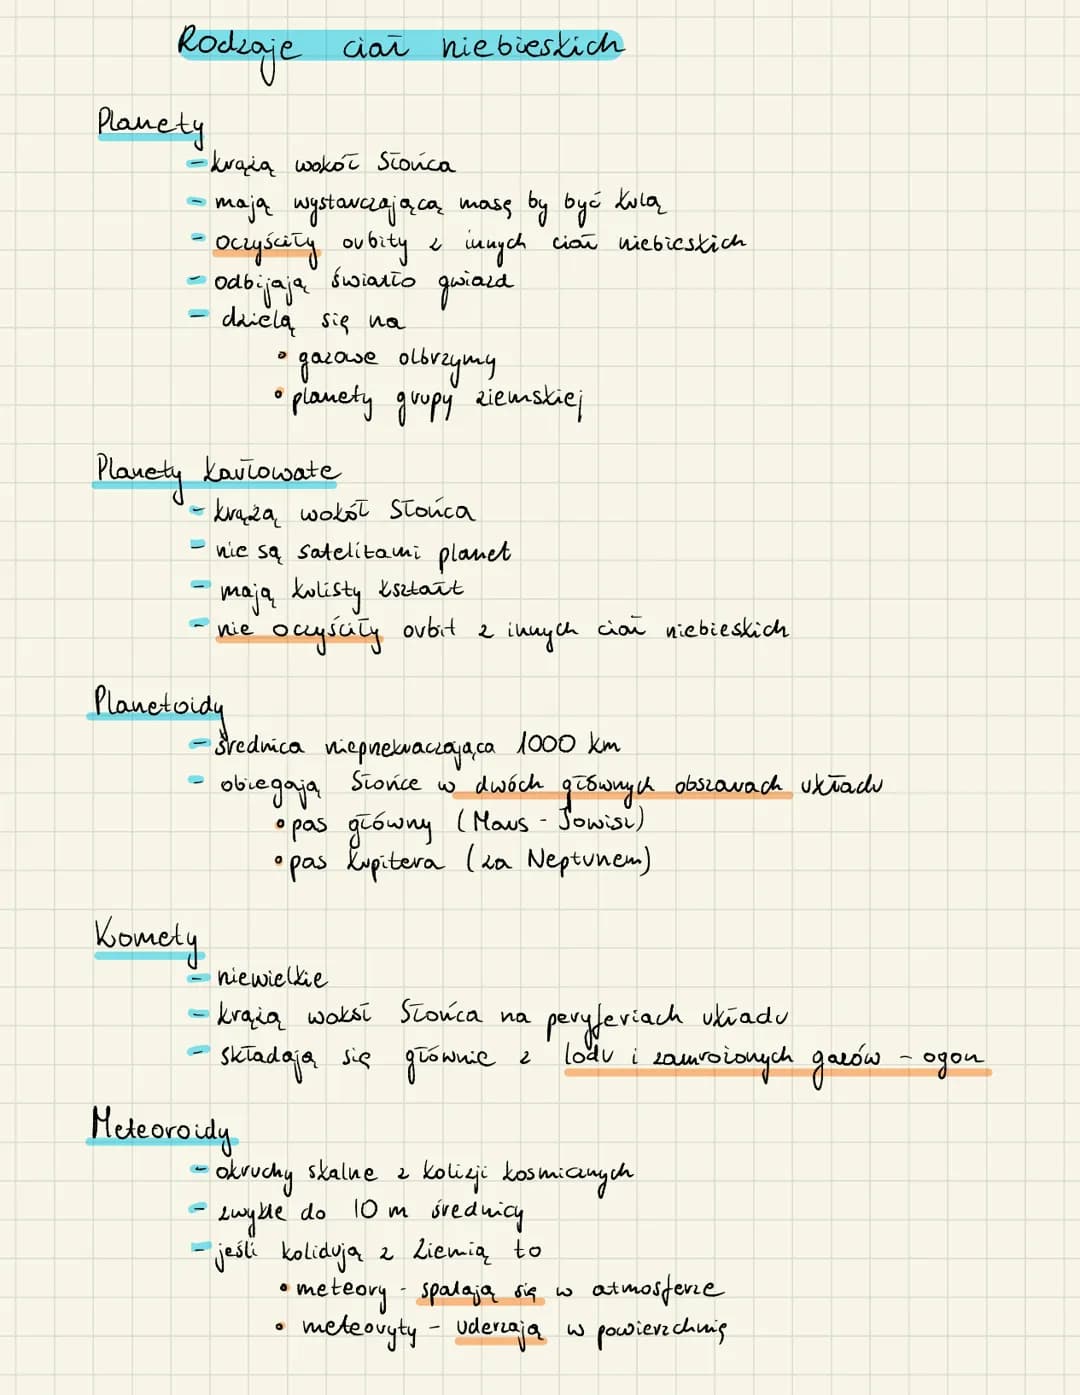 Rodzaje ciał niebieskich
Planety
- krążą wokół Słońca
- mają wystarczającą masę by być kulą
- oczyściły orbity z innych ciał niebieskich
- odbijają światło gwiazd
- dzielą się na
• gazowe olbrzymy
• planety grupy ziemskiej
Planety karłowate
- krążą wokół Słońca
- nie są satelitami planet
- mają kulisty kształt
- nie oczyściły orbit z innych ciał niebieskich
Planetoidy
- średnica nieprzekraczająca 1000 km
- obiegają Słońce w dwóch głównych obszarach układu
• pas główny (Mars - Jowisz)
• pas Kupitera (za Neptunem)
Komety
- niewielkie
- krążą wokół Słońca na peryferiach układu
- składają się głównie z lodu i zamrożonych gazów - ogon
Meteoroidy
- okruchy skalne z kolizji kosmicznych
- zwykle do 10 m średnicy
- jeśli kolidują z Ziemią to
• meteory - spalają się w atmosferze
• meteoryty - uderzają w powierzchnię